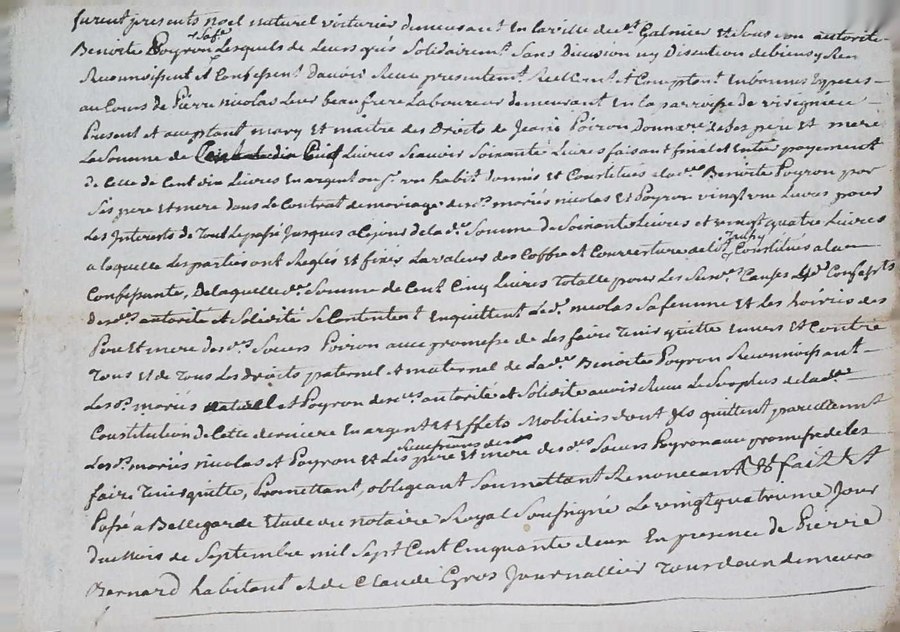 furent presents noel naturel voiturier demeurant En la ville de st Galmier Et sous son autorité
sa fe
Benoite Poyron Lesquels de Leurs grés Solidairemt Sans Division ny Discution de biens y Ren
Reconnoissent et Confessent D'avoir Receu presentemt Reellemt et Comptant En bonnes Especes
au Cours de Pierre nicolas Leur beaufrere Laboureur demeurant En la parroisse de virignieu
Present et acceptant mary Et maitre des Droits de Jeane Poiron Donnatre de ses pere Et mere
La Somme de Cent Livres Scavoir Soixante Livres faisant final et Entier payement
de Celle de Cent dix Livres En argent ou pr un habit donnés et Constitues a lad. Benoite Poyron par
Ses pere Et mere dans Le Contrat de mariage des mariés nicolas Et Poyron vingt un Livres pour
Les Interets de Tout Le passé Jusques a Ce jour de lad. Somme de Soixante Livres et vingt quatre Livres
a laquelle Les parties ont Reglés Et fixés La valeur des Coffre et Couverture de lit Constitués a la
Confessante, De laquelle de Somme de Cent Cinq Livres Totalle pour Les Susd. Causes Lesd. Confessts
desd. autorité et Solidité Se Contentent Enquittent Led. nicolas Sa femme Et Les hoiries des
Pere Et mere desd. Soeurs Poiron avec promesse de Les faire Tenir quitte Envers Et Contre
Tous Et de Tous Les droits paternel et maternel de Lad. Benoite Poyron Reconnoissant
Lesd. mariés naturel et Poyron desd. autorité et Solidité avoir Receu Le Surplus de lad.
Constitution de Cette derniere En argent et Effets Mobiliers dont ils quittent pareillemt
Successions des
Lesd. mariés nicolas et Poyron Et Les pere Et mere desd. Soeurs Poyron avec promesse de Les
faire Tenir quitte, Promettant, obligeant Soumettant Renonceant Et fait Et
Passé a Bellegarde Etude du notaire Royal Soussigné Le vingtquatrieme Jour
du Mois de Septembre mil Sept Cent Cinquante deux En presence de Pierre
Bernard habitant et de Claude Gros Journallier demeura